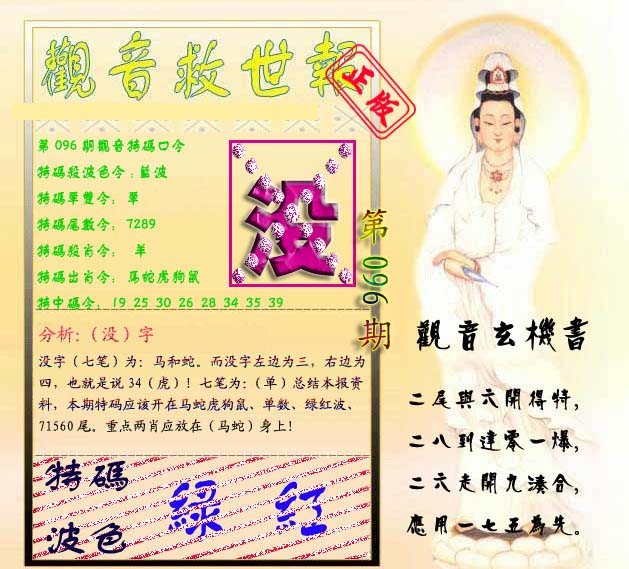 觀音救世報
正版
第096期觀音特碼口令
特碼殺波色令:藍波
特碼單雙令: 單
特碼尾數令: 7289
特碼殺肖令: 羊
特碼出肖令: 馬蛇虎狗鼠
特中碼令: 19 25 30 26 28 34 35 39
没
第096期
分析:(没)字
没字(七笔)为:马和蛇。而没字左边为三,右边为
四,也就是说34(虎)!七笔为:(单)总结本报资
料,本期特码应该开在马蛇虎狗鼠、单数、绿红波、
71560尾。重点两肖应放在(马蛇)身上!
特碼
波色
綠 紅
觀音玄機書
二尾與六開得特,
二八到達零一爆,
二六走開九湊合,
應用一七五為先。